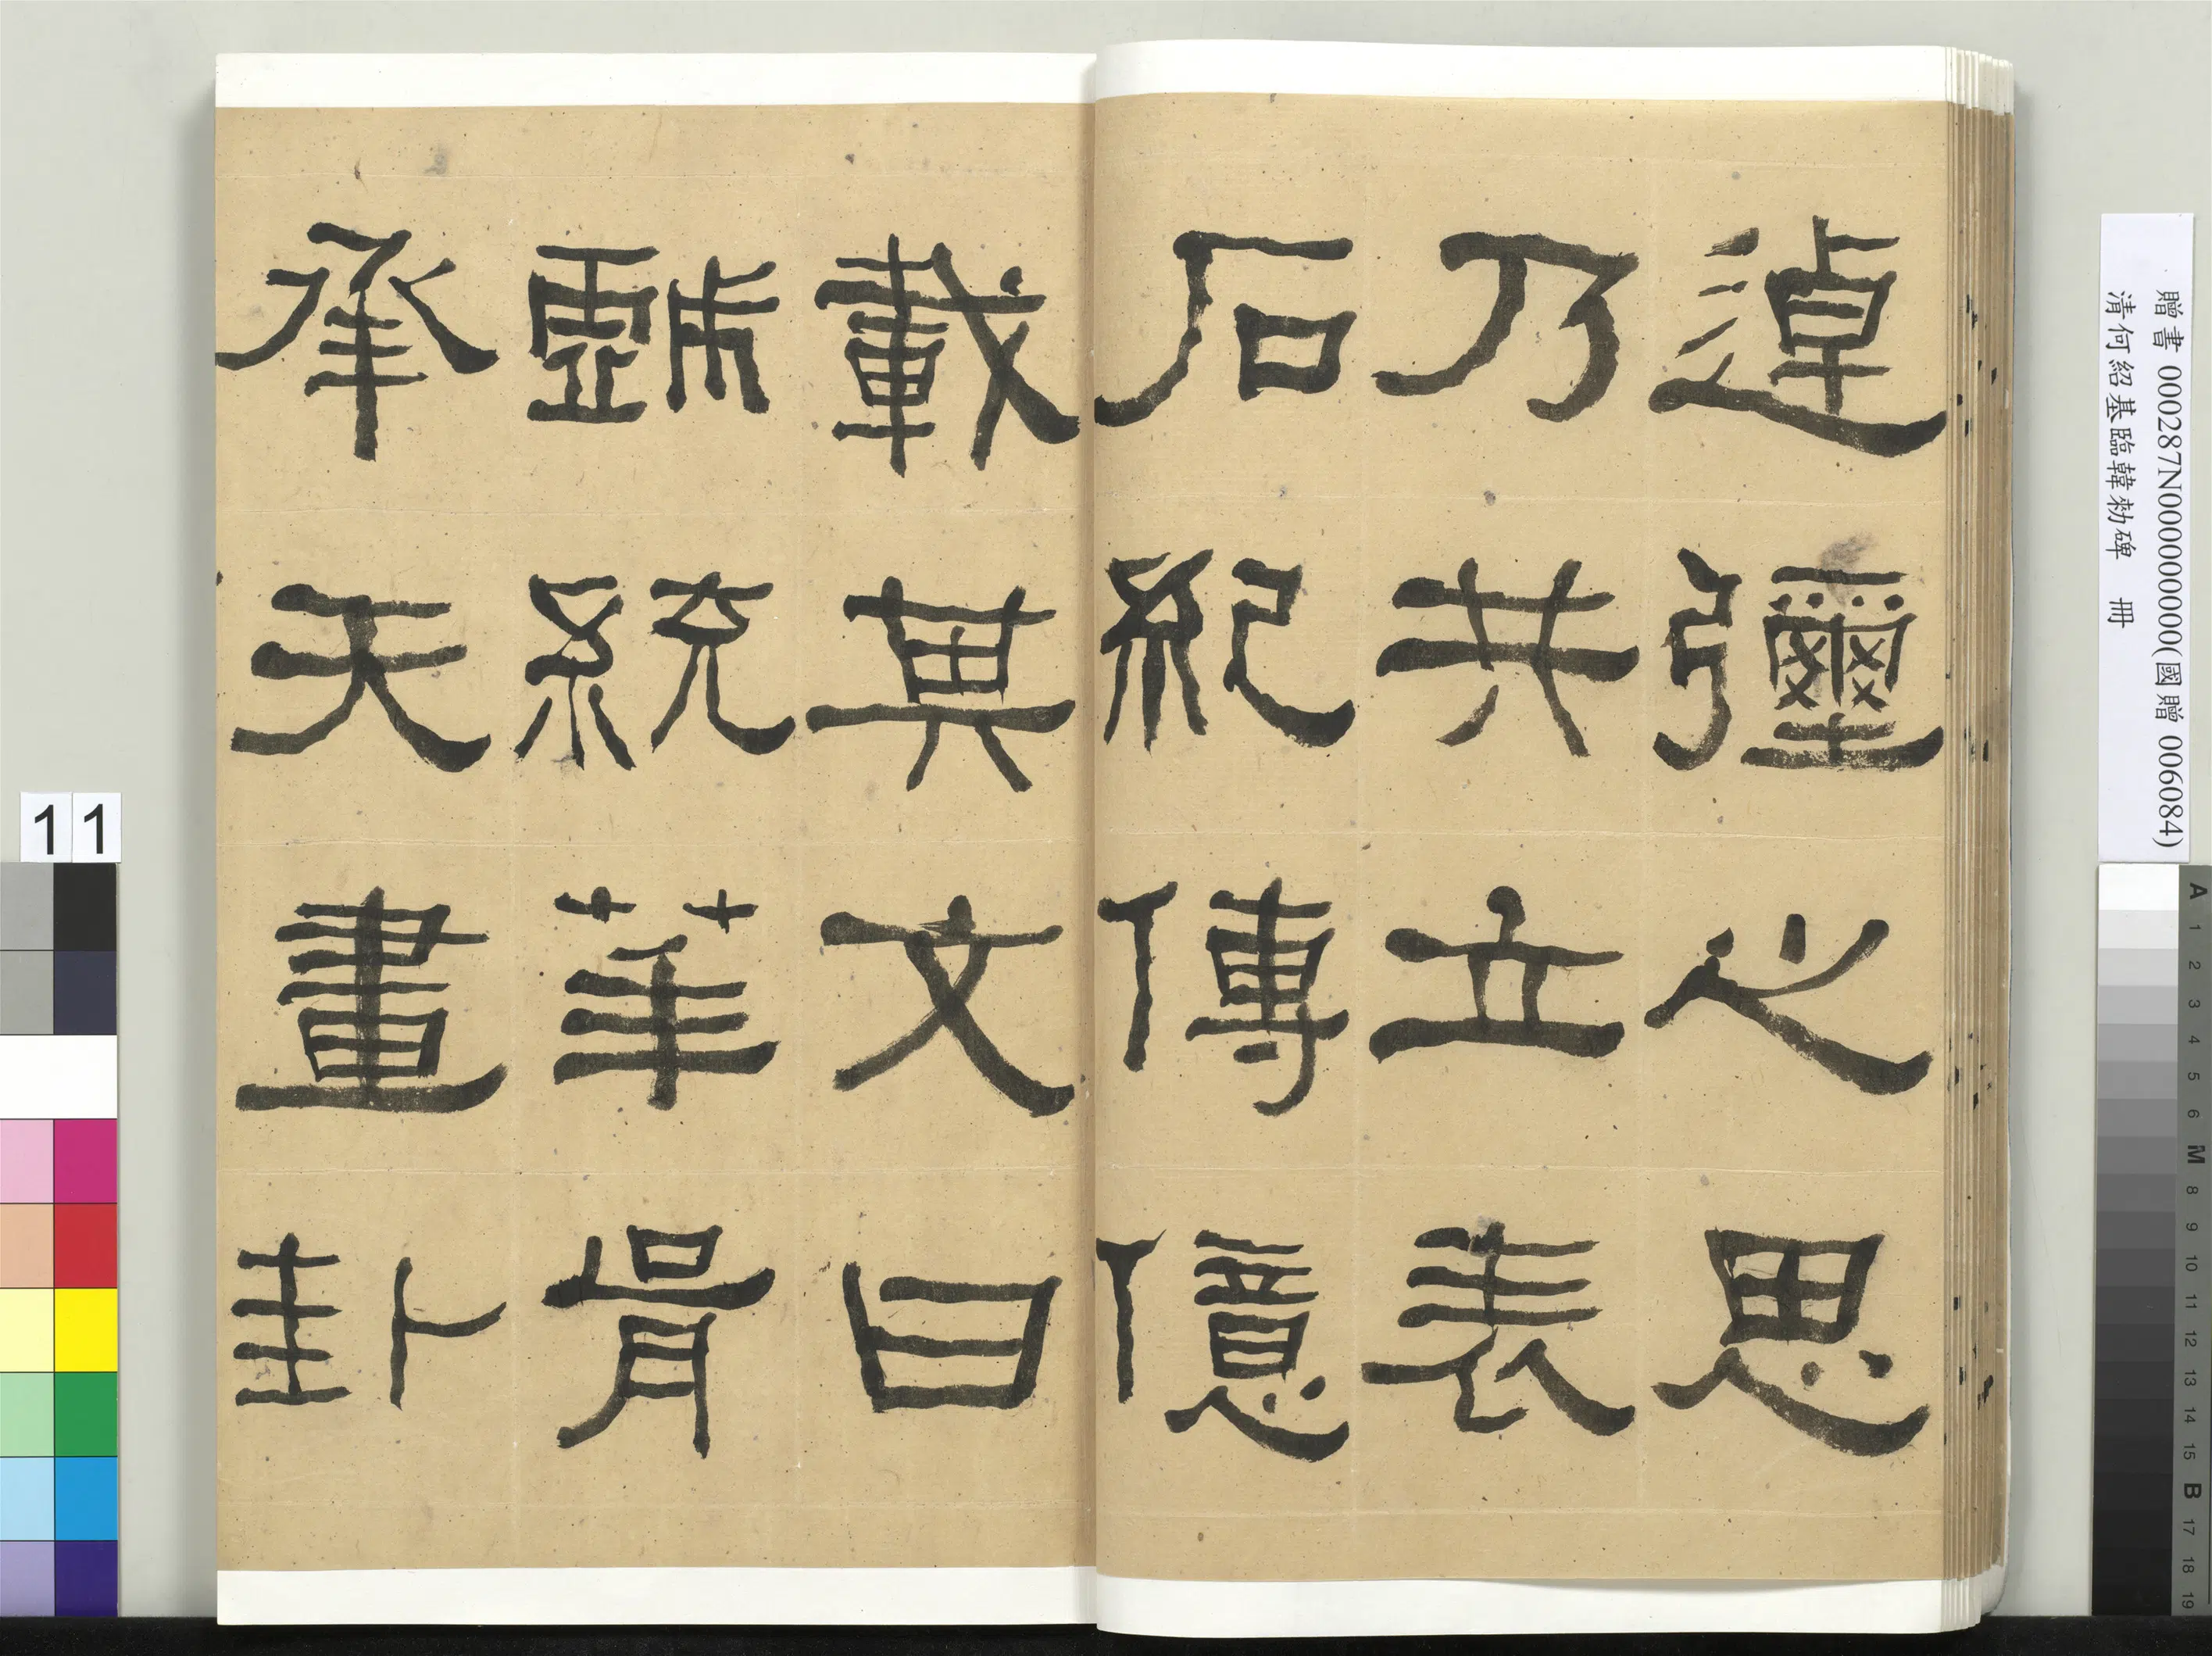 逴彌之思
乃共立表
石紀傳億
載其文曰
統華胥
承天畫卦
贈書 000287N000000000(國贈 006084)
清何紹基臨韓勑碑 冊
11
A 1 2 3 4 5 6 M 8 9 10 11 12 13 14 15 B 17 18 19